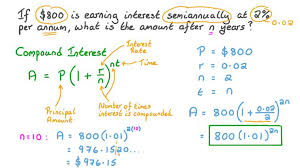 If $800 is earning interest semiannually at 2%
per annum, what is the amount after n years?
0.02
Compound Interest
Interest Rate
A = P(1 + r/n)^nt
Time
Principal Amount
Number of times interest is compounded
P = $800
r = 0.02
n = 2
t = n
A = 800(1 + 0.02/2)^2n
800(1.01)^2n
n=10:
A = 800(1.01)^2(10)
= 976.15|20...
≈ $976.15